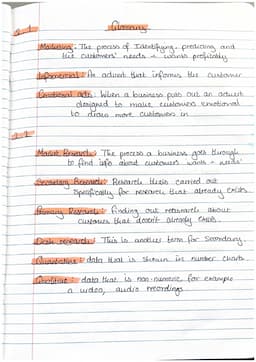 Glossary
2.1
Marketing: The process of Identifying, predicting and
the customers' needs + wants profitably
Infomercial: An advert that informs the customer
Emotional ads: When a business puts out an advert
designed to make customers emotional
to draw more customers in
2.2
Market Research: The process a business goes through
to find info about customers wants + needs
Secondary Research: Research that's carried out
specifically for research that already exists.
Primary Research: finding out research about
customers that doesn't already exist.
Desk research: This is another term for Secondary.
Quantative: data that is shown in number charts
Qualitive: data that is non-numeric for example
a video, audio recordings